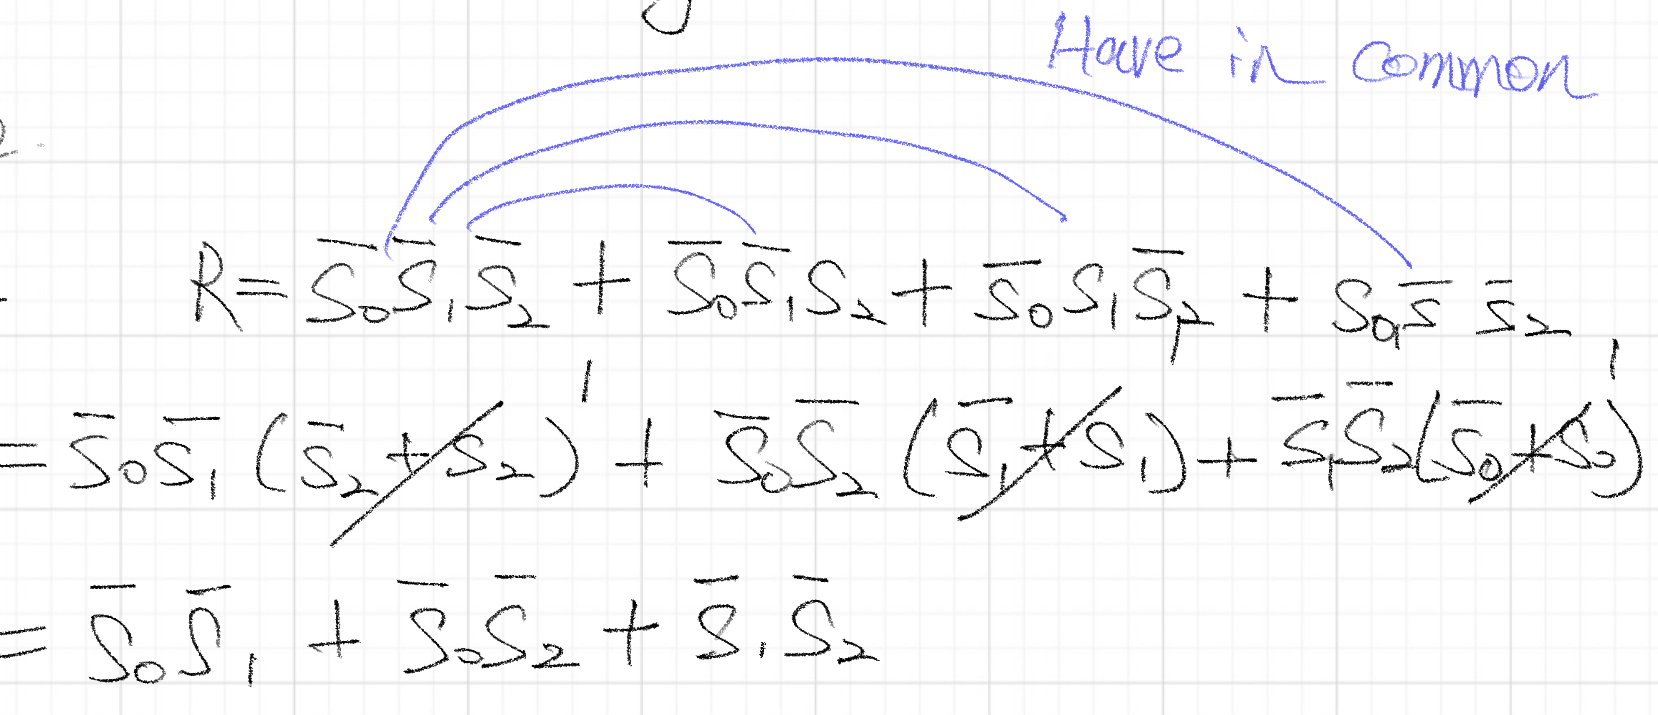 Have in common
R = S̅₀S̅₁S̅₂ + S̅₀S̅₁S₂ + S̅₀S₁S̅₂ + S₀S̅₁S̅₂
= S̅₀S̅₁(S̅₂+S₂)¹ + S̅₀S̅₂(S̅₁+S₁)¹ + S̅₁S̅₂(S̅₀+S₀)¹
= S̅₀S̅₁ + S̅₀S̅₂ + S̅₁S̅₂